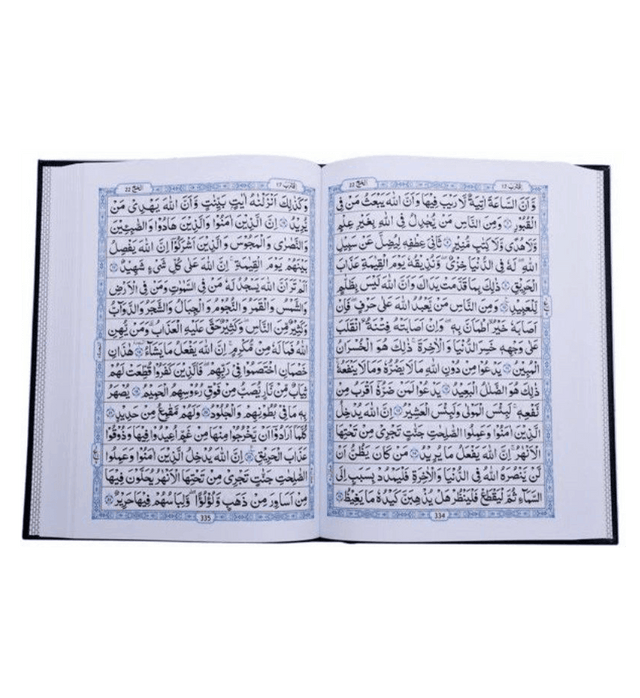 اقترب ١٧
الحج ٢٢
وَّاَنَّ السَّاعَةَ اٰتِيَةٌ لَّا رَيْبَ فِيْهَا وَاَنَّ اللّٰهَ يَبْعَثُ مَنْ فِى
الْقُبُوْرِ ۞ وَمِنَ النَّاسِ مَنْ يُّجَادِلُ فِى اللّٰهِ بِغَيْرِ عِلْمٍ
وَّلَا هُدًى وَّلَا كِتٰبٍ مُّنِيْرٍ ۞ ثَانِىَ عِطْفِهٖ لِيُضِلَّ عَنْ سَبِيْلِ
اللّٰهِ ؕ لَهٗ فِى الدُّنْيَا خِزْىٌ وَّنُذِيْقُهٗ يَوْمَ الْقِيٰمَةِ عَذَابَ
الْحَرِيْقِ ۞ ذٰلِكَ بِمَا قَدَّمَتْ يَدٰكَ وَاَنَّ اللّٰهَ لَيْسَ بِظَلَّامٍ
لِّلْعَبِيْدِ ۞ وَمِنَ النَّاسِ مَنْ يَّعْبُدُ اللّٰهَ عَلٰى حَرْفٍ ۚ فَاِنْ
اَصَابَهٗ خَيْرُ ۨاطْمَاَنَّ بِهٖ ۚ وَاِنْ اَصَابَتْهُ فِتْنَةُ ۨانْقَلَبَ
عَلٰى وَجْهِهٖ ۚ خَسِرَ الدُّنْيَا وَالْاٰخِرَةَ ؕ ذٰلِكَ هُوَ الْخُسْرَانُ
الْمُبِيْنُ ۞ يَدْعُوْا مِنْ دُوْنِ اللّٰهِ مَا لَا يَضُرُّهٗ وَمَا لَا يَنْفَعُهٗ ؕ
ذٰلِكَ هُوَ الضَّلٰلُ الْبَعِيْدُ ۞ يَدْعُوْا لَمَنْ ضَرُّهٗۤ اَقْرَبُ مِنْ
نَّفْعِهٖ ؕ لَبِئْسَ الْمَوْلٰى وَلَبِئْسَ الْعَشِيْرُ ۞ اِنَّ اللّٰهَ يُدْخِلُ
الَّذِيْنَ اٰمَنُوْا وَعَمِلُوا الصّٰلِحٰتِ جَنّٰتٍ تَجْرِىْ مِنْ تَحْتِهَا
الْاَنْهٰرُ ؕ اِنَّ اللّٰهَ يَفْعَلُ مَا يُرِيْدُ ۞ مَنْ كَانَ يَظُنُّ اَنْ
لَّنْ يَّنْصُرَهُ اللّٰهُ فِى الدُّنْيَا وَالْاٰخِرَةِ فَلْيَمْدُدْ بِسَبَبٍ اِلَى
السَّمَآءِ ثُمَّ لْيَقْطَعْ فَلْيَنْظُرْ هَلْ يُذْهِبَنَّ كَيْدُهٗ مَا يَغِيْظُ ۞
334
اقترب ١٧
الحج ٢٢
وَكَذٰلِكَ اَنْزَلْنٰهُ اٰيٰتٍۭ بَيِّنٰتٍ ۙ وَّاَنَّ اللّٰهَ يَهْدِىْ مَنْ
يُّرِيْدُ ۞ اِنَّ الَّذِيْنَ اٰمَنُوْا وَالَّذِيْنَ هَادُوْا وَالصّٰبِــِٕيْنَ
وَالنَّصٰرٰى وَالْمَجُوْسَ وَالَّذِيْنَ اَشْرَكُوْۤا ۖ اِنَّ اللّٰهَ يَفْصِلُ
بَيْنَهُمْ يَوْمَ الْقِيٰمَةِ ؕ اِنَّ اللّٰهَ عَلٰى كُلِّ شَىْءٍ شَهِيْدٌ ۞
اَلَمْ تَرَ اَنَّ اللّٰهَ يَسْجُدُ لَهٗ مَنْ فِى السَّمٰوٰتِ وَمَنْ فِى الْاَرْضِ
وَالشَّمْسُ وَالْقَمَرُ وَالنُّجُوْمُ وَالْجِبَالُ وَالشَّجَرُ وَالدَّوَآبُّ
وَكَثِيْرٌ مِّنَ النَّاسِ ؕ وَكَثِيْرٌ حَقَّ عَلَيْهِ الْعَذَابُ ؕ وَمَنْ يُّهِنِ
اللّٰهُ فَمَا لَهٗ مِنْ مُّكْرِمٍ ؕ اِنَّ اللّٰهَ يَفْعَلُ مَا يَشَآءُ ۞ هٰذٰنِ
خَصْمٰنِ اخْتَصَمُوْا فِىْ رَبِّهِمْ ۫ فَالَّذِيْنَ كَفَرُوْا قُطِّعَتْ لَهُمْ
ثِيَابٌ مِّنْ نَّارٍ ؕ يُصَبُّ مِنْ فَوْقِ رُءُوْسِهِمُ الْحَمِيْمُ ۞ يُصْهَرُ
بِهٖ مَا فِىْ بُطُوْنِهِمْ وَالْجُلُوْدُ ۞ وَلَهُمْ مَّقَامِعُ مِنْ حَدِيْدٍ ۞
كُلَّمَاۤ اَرَادُوْۤا اَنْ يَّخْرُجُوْا مِنْهَا مِنْ غَمٍّ اُعِيْدُوْا فِيْهَا ۗ وَذُوْقُوْا
عَذَابَ الْحَرِيْقِ ۞ اِنَّ اللّٰهَ يُدْخِلُ الَّذِيْنَ اٰمَنُوْا وَعَمِلُوا
الصّٰلِحٰتِ جَنّٰتٍ تَجْرِىْ مِنْ تَحْتِهَا الْاَنْهٰرُ يُحَلَّوْنَ فِيْهَا
مِنْ اَسَاوِرَ مِنْ ذَهَبٍ وَّلُؤْلُؤًا ؕ وَلِبَاسُهُمْ فِيْهَا حَرِيْرٌ ۞
335